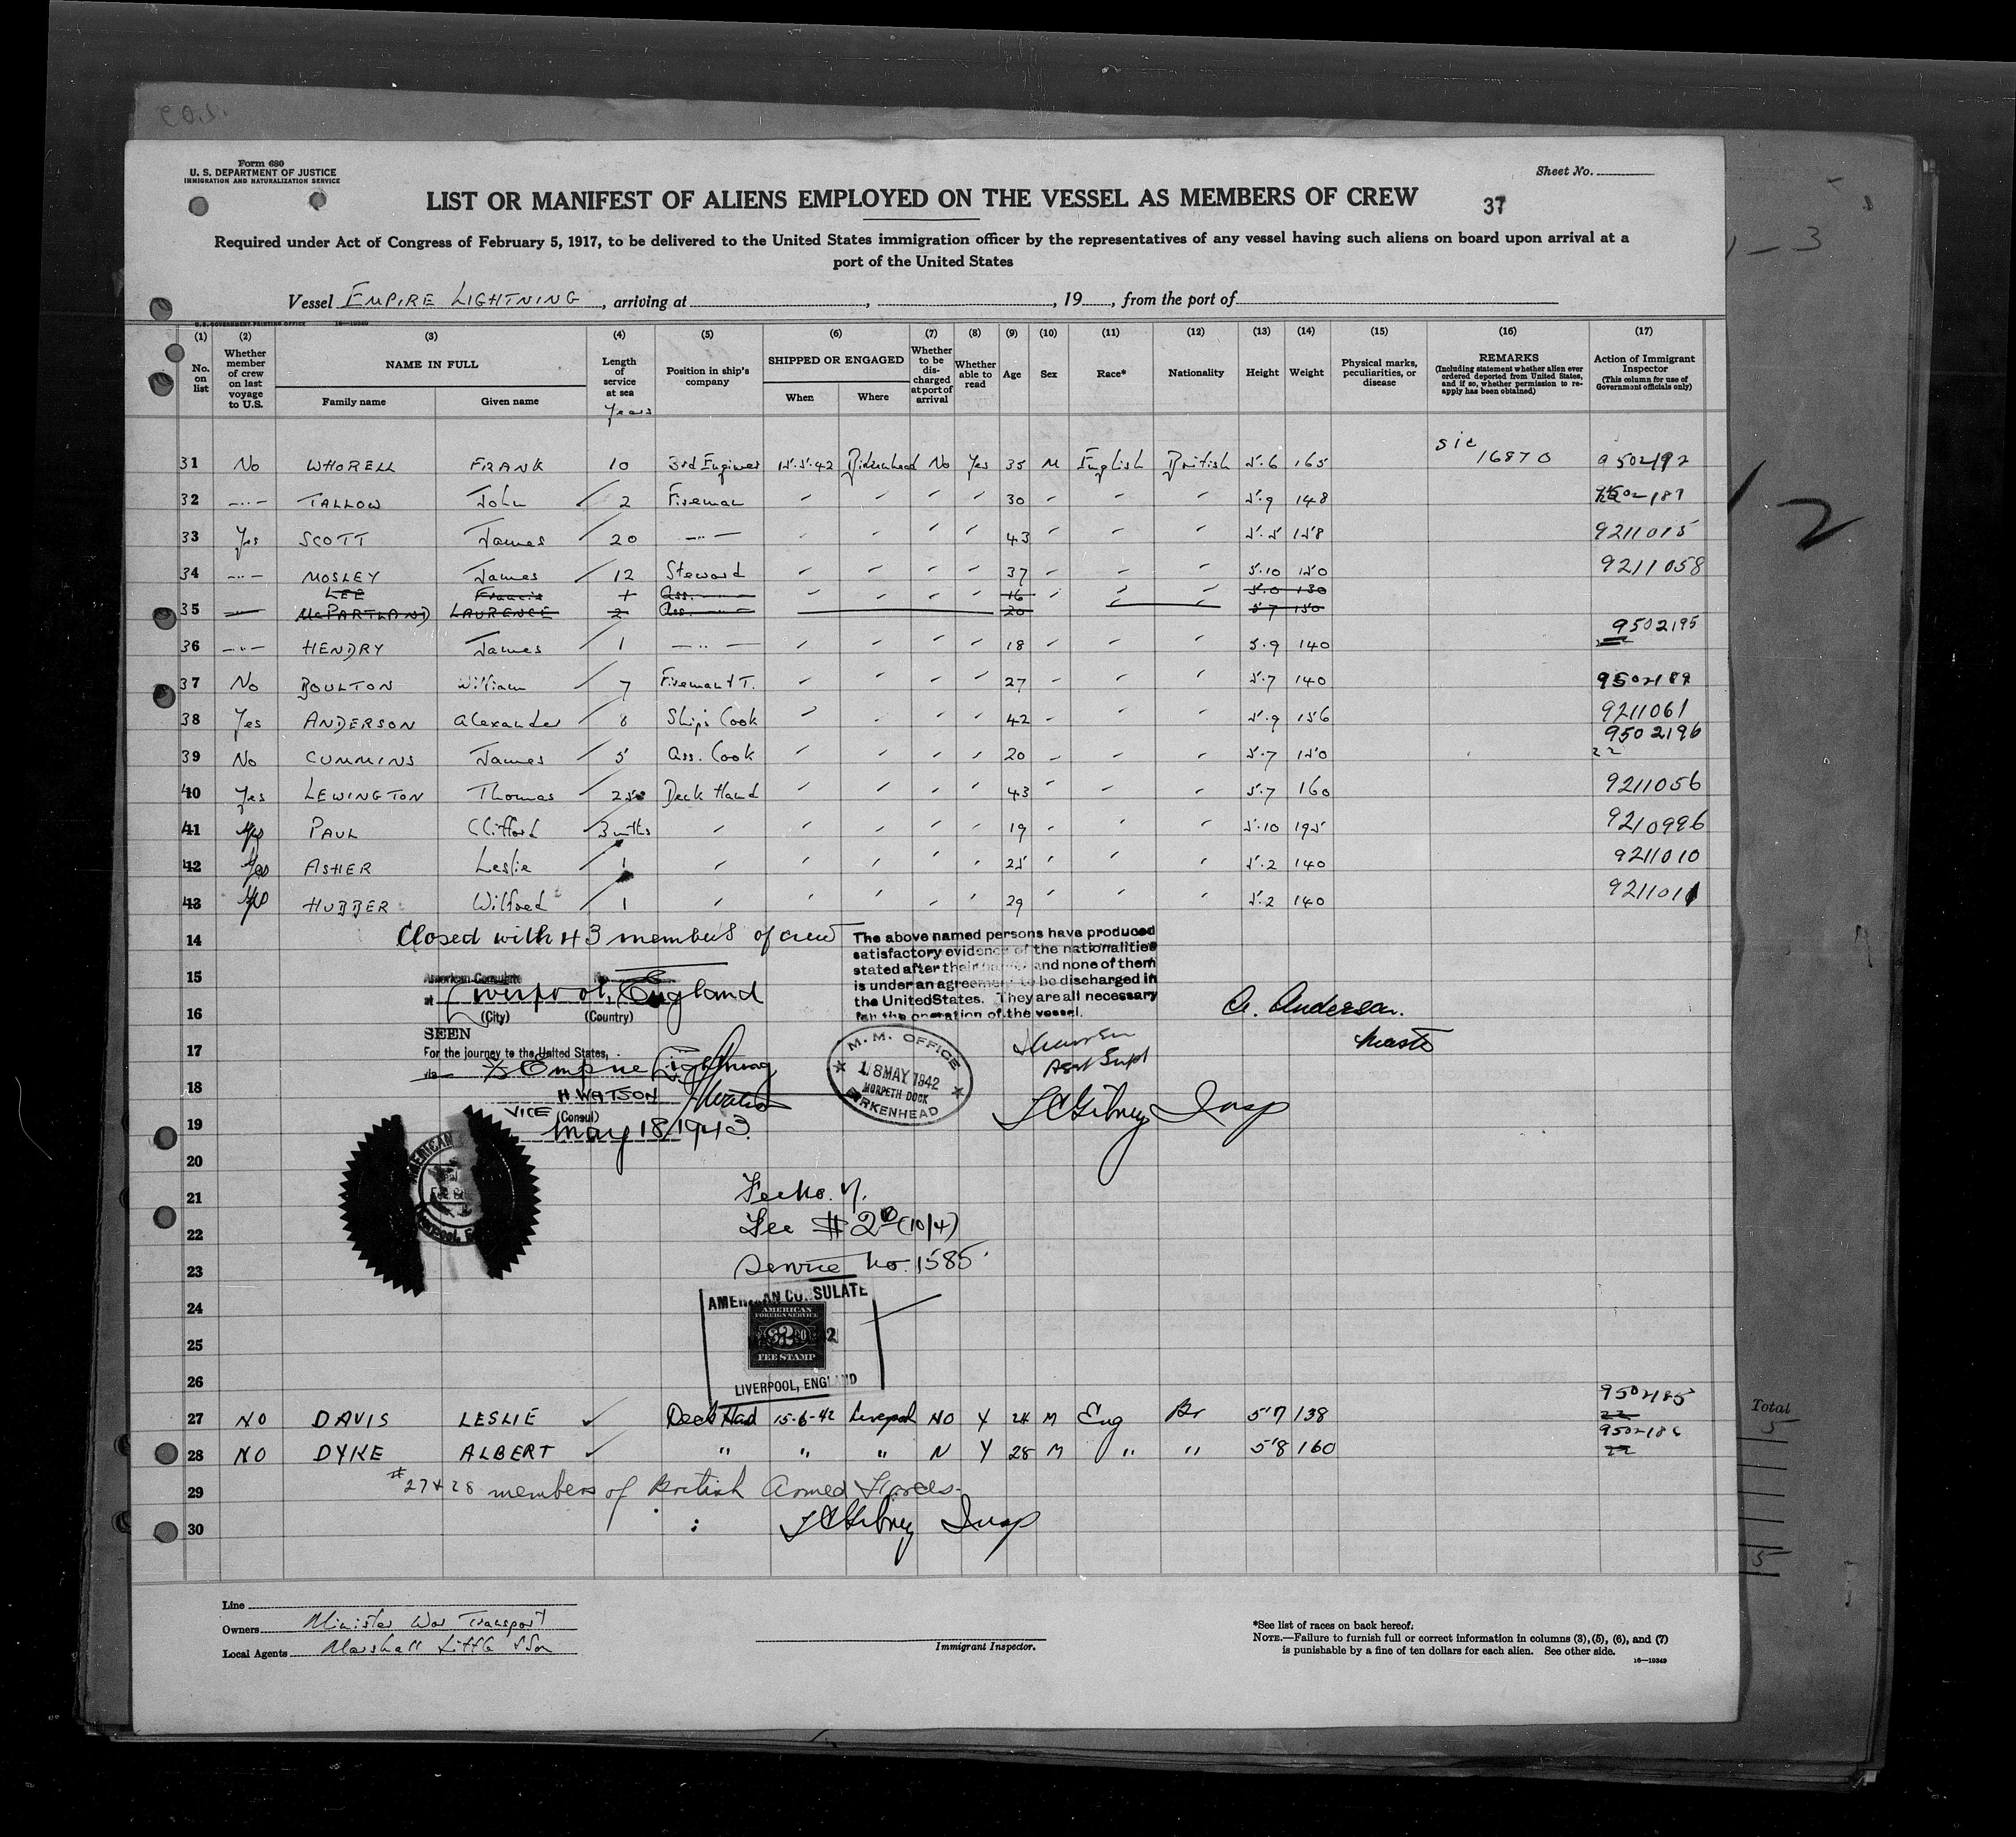 C.O.S.
Form 680
U. S. DEPARTMENT OF JUSTICE
IMMIGRATION AND NATURALIZATION SERVICE
Sheet No.
LIST OR MANIFEST OF ALIENS EMPLOYED ON THE VESSEL AS MEMBERS OF CREW 37
Required under Act of Congress of February 5, 1917, to be delivered to the United States immigration officer by the representatives of any vessel having such aliens on board upon arrival at a
port of the United States
Vessel EMPIRE LIGHTNING, arriving at , , 19 , from the port of
U.S. GOVERNMENT PRINTING OFFICE 16—19349
(1) (2) (3) (4) (5) (6) (7) (8) (9) (10) (11) (12) (13) (14) (15) (16) (17)
No. on list
Whether member of crew on last voyage to U.S.
NAME IN FULL
Family name Given name
Length of service at sea
Years
Position in ship's company
SHIPPED OR ENGAGED
When Where
Whether to be discharged at port of arrival
Whether able to read
Age
Sex
Race*
Nationality
Height
Weight
Physical marks, peculiarities, or disease
REMARKS
(Including statement whether alien ever ordered deported from United States, and if so, whether permission to re-apply has been obtained)
Action of Immigrant Inspector
(This column for use of Government officials only)
31 No WHORELL FRANK 10 3rd Engineer 15.5.42 Birkenhead No Yes 35 M English British 5.6 165 sic 16870 9502192
32 —..— TALLOW John 2 Fireman 30 5.9 148 9502187
33 Yes SCOTT James 20 —..— 43 5.5 158 9211015
34 —..— MOSLEY James 12 Steward 37 5.10 150 9211058
LEE Francis 1 Ass. 16 5.0 130
35 McPARTLAND LAURENCE 2 Ass. 20 5 7 150
36 —..— HENDRY James 1 —..— 18 5.9 140 9502195
37 No BOULTON William 7 Fireman & T. 27 5.7 140 9502189
38 Yes ANDERSON Alexander 8 Ship's Cook 42 5.9 156 9211061
39 No CUMMINS James 5 Ass. Cook 20 5.7 150 9502196
22
40 Yes LEWINGTON Thomas 25 Deck Hand 43 5.7 160 9211056
41 Yes PAUL Clifford 3 mths 19 5.10 195 9210996
42 Yes ASHER Leslie 1 25 5.2 140 9211010
43 Yes HUBBER Wilfred 1 29 5.2 140 9211011
Closed with 43 members of crew
14
15
16
17
18
19
20
21
22
23
24
25
26
The above named persons have produced
satisfactory evidence of the nationalities
stated after their names and none of them
is under an agreement to be discharged in
the United States. They are all necessary
for the operation of the vessel.
American Consulate
at Liverpool, England
(City) (Country)
SEEN
For the journey to the United States,
via S/S Empire Lightning
H. WATSON
VICE (Consul)
May 18/1943
M. M. OFFICE
18 MAY 1942
MORPETH DOCK
BIRKENHEAD
Asst Supt
A. Anderson.
Master
Insp
AMERICAN
Fee No. 7.
Fee # 2 00 (10/4)
Service No. 1585
AMERICAN CONSULATE
AMERICAN
FOREIGN SERVICE
FEE STAMP
LIVERPOOL, ENGLAND
27 NO DAVIS LESLIE Deck Hand 15-6-42 Liverpool NO Y 24 M Eng Br 5'7 138 9502185
22
28 NO DYKE ALBERT " " " N Y 28 M " " 5'8 160 9502186
22
29 #27 & 28 members of British Armed Forces.
30 Insp
Line
Owners Minister War Transport
Local Agents Marshall Little & Son
Immigrant Inspector.
*See list of races on back hereof.
NOTE.—Failure to furnish full or correct information in columns (3), (5), (6), and (7)
is punishable by a fine of ten dollars for each alien. See other side.
16—19349
1—3
2
Total
5
5